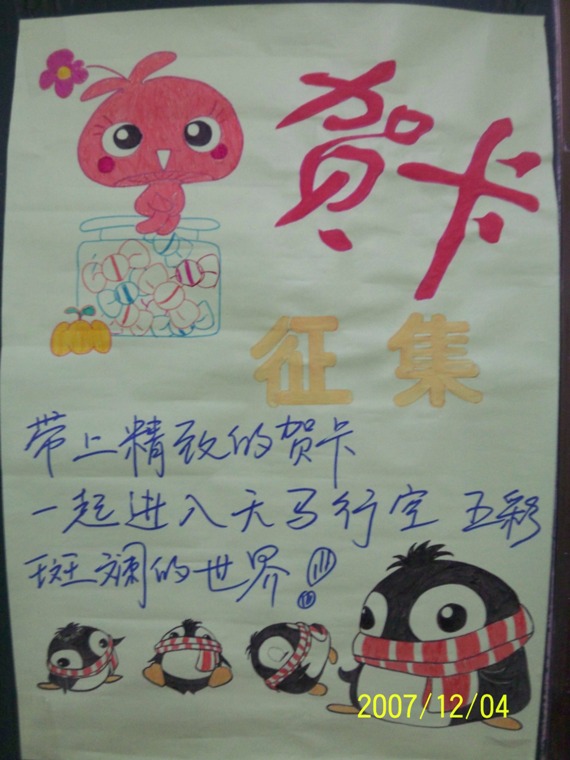 贺卡
征集
带上精致的贺卡
一起进入天马行空 五彩
斑斓的世界！
2007/12/04